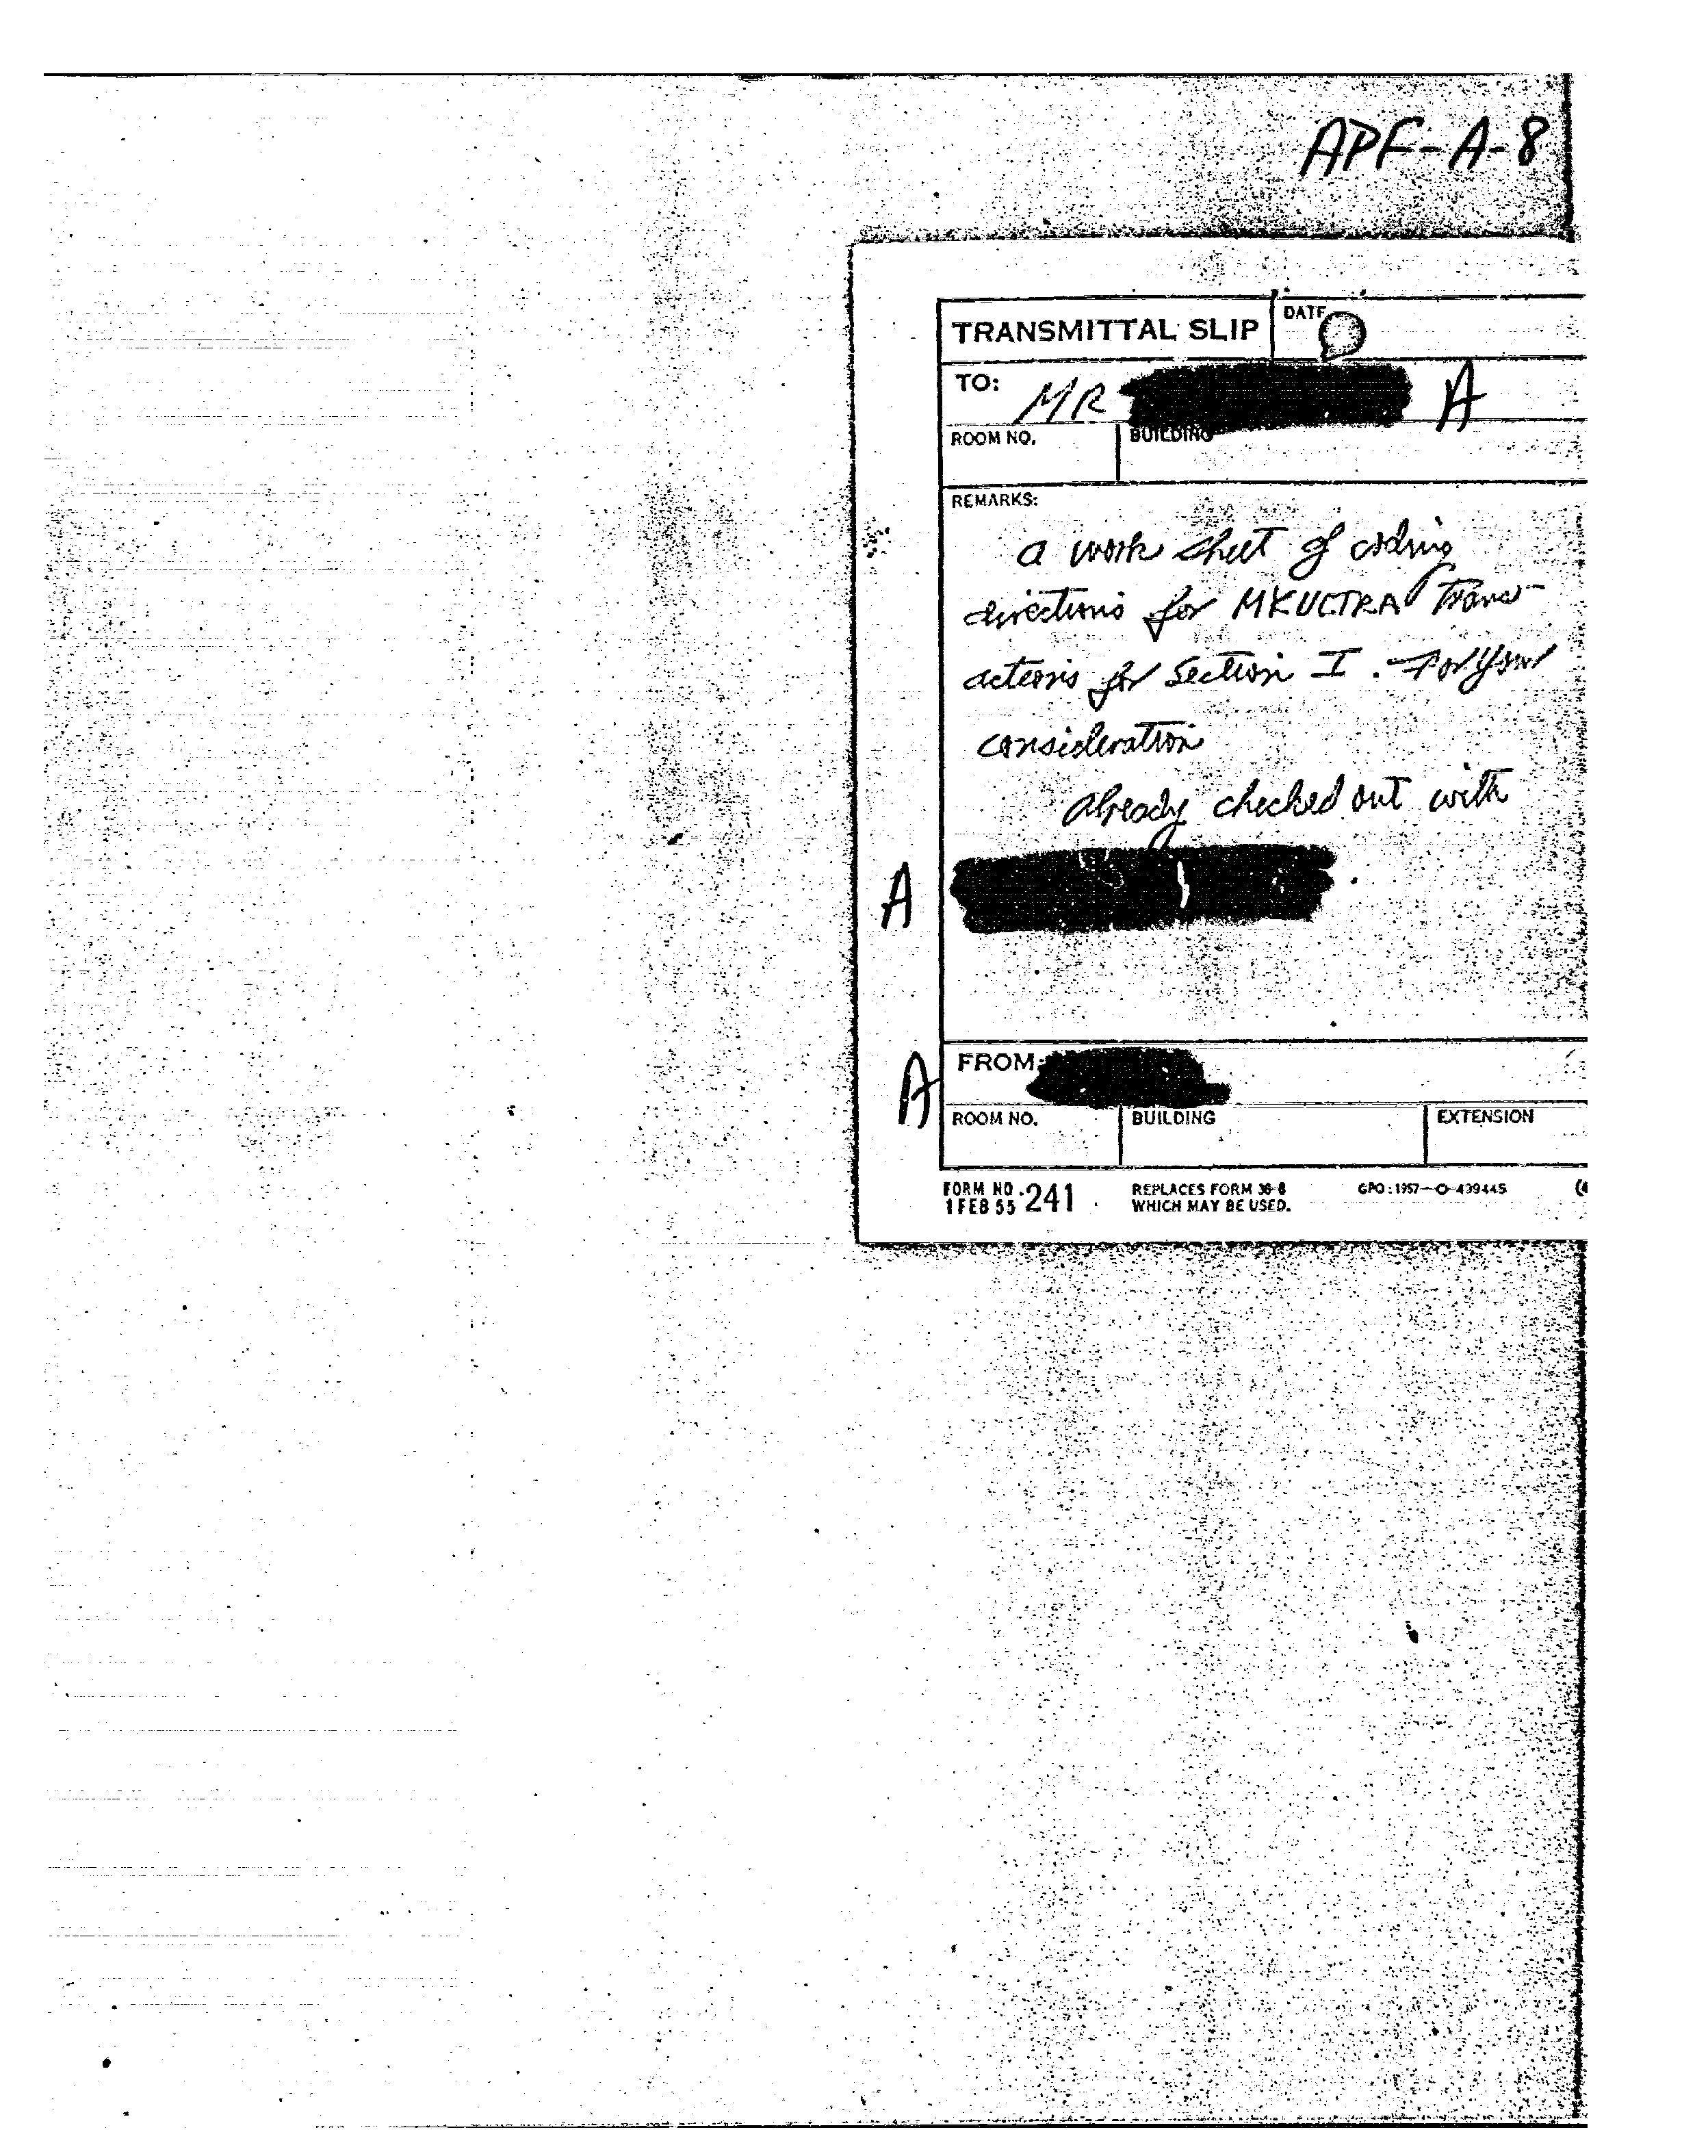 APF-A-8
TRANSMITTAL SLIP
DATE
TO: MR
A
ROOM NO.
BUILDING
REMARKS:
a work sheet of coding
directions for MKULTRA Trans-
actions for Section I. For your
consideration
already checked out with
A
A
FROM:
ROOM NO.
BUILDING
EXTENSION
FORM NO. 241
1 FEB 55
REPLACES FORM 36-8
WHICH MAY BE USED.
GPO: 1957-O-439445